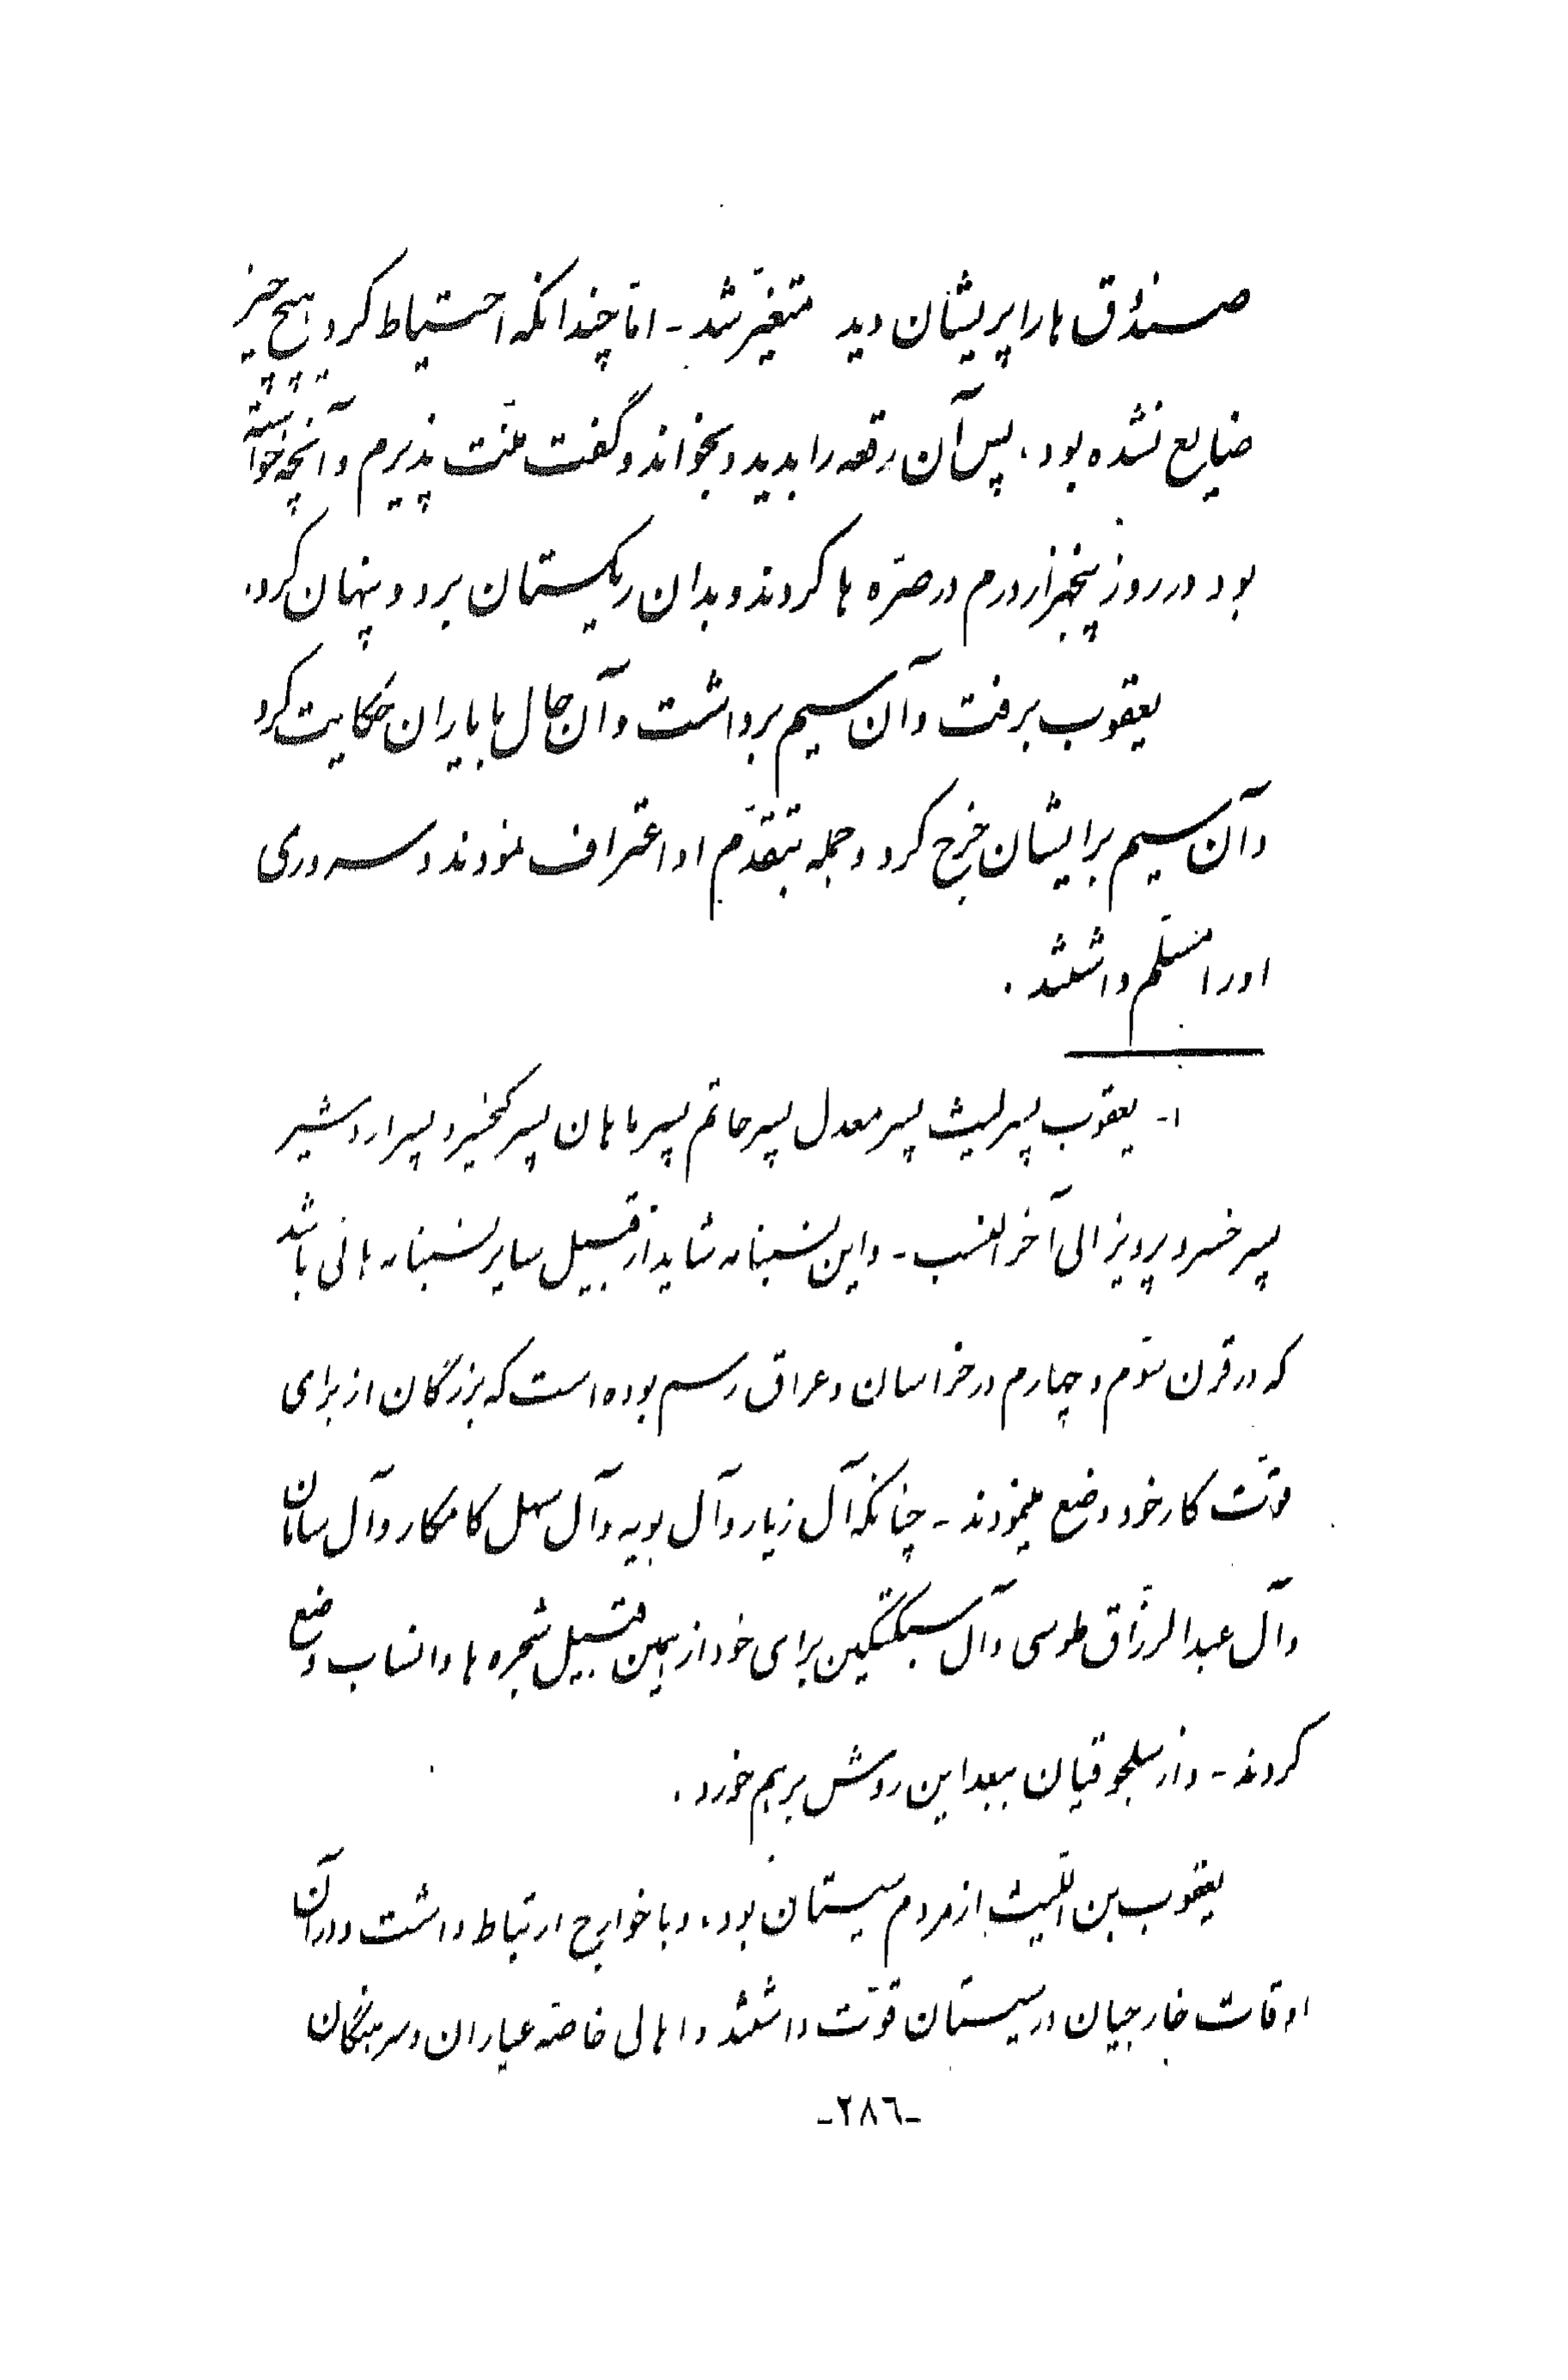 صندوق ها را پریشان دید متغیّر شد - امّا چندانکه احتیاط کرد هیچ چیز
ضایع نشده بود. پس آن رقعه را بدید و بخواند و گفت منّت پذیرم و آنچه خواسته
بود در روز پنجهزار درم در صرّه ها کردند و بدان ریگستان برد و پنهان کرد.
یعقوب برفت و آن سیم برداشت و آن حال با یاران حکایت کرد
و آن سیم بر ایشان خرج کرد و جمله بتقدّم او اعتراف نمودند و سروری
او را مسلّم داشتند.
۱- یعقوب پسر لیث پسر معدل پسر حاتم پسر ماهان پسر کیخسرو پسر اردشیر
پسر خسرو پرویز الی آخر النسب - و این نسبنامه شاید از قبیل سایر نسبنامه هائی باشد
که در قرن سوّم و چهارم در خراسان و عراق رسم بوده است که بزرگان از برای
قوّت کار خود وضع مینمودند - چنانکه آل زیار و آل بویه و آل سهل کامکار و آل سامان
و آل عبدالرزّاق طوسی و آل سبکتکین برای خود از همین قبیل شجره ها و انساب وضع
کردند - و از سلجوقیان ببعد این روش بر هم خورد.
یعقوب بن اللّیث از مردم سیستان بود، و با خوارج ارتباط داشت و در آن
اوقات خارجیان در سیستان قوّت داشتند و اهالی خاصّه عیاران و سرهنگان
-۲۸٦-